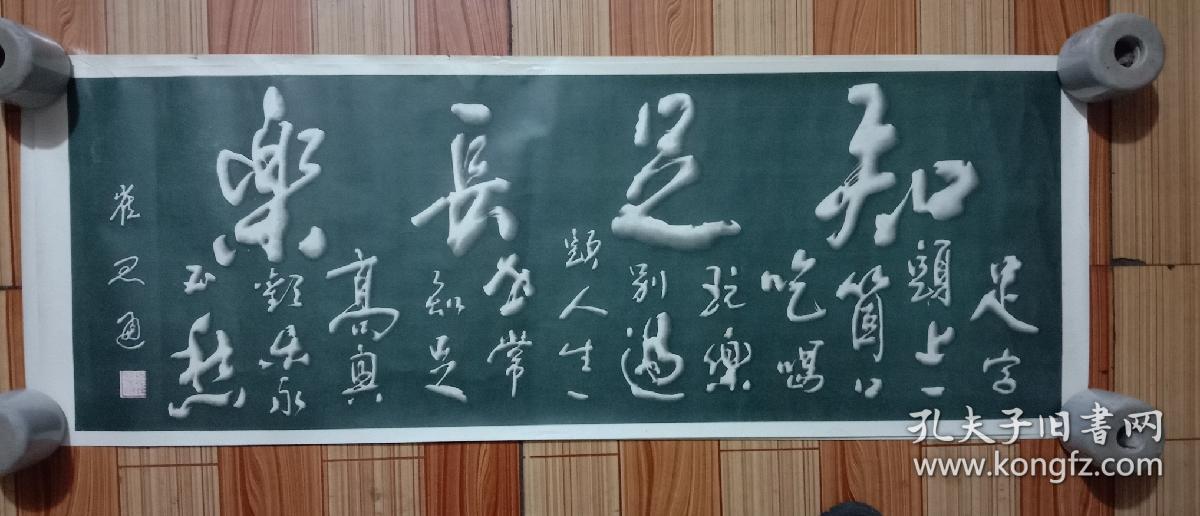 知足長樂
足字
頭上一
箇口
吃喝
玩樂
別過
頭人生一
世常
知足
高與
歡樂永
不愁
崔思通
孔夫子旧書网
www.kongfz.com